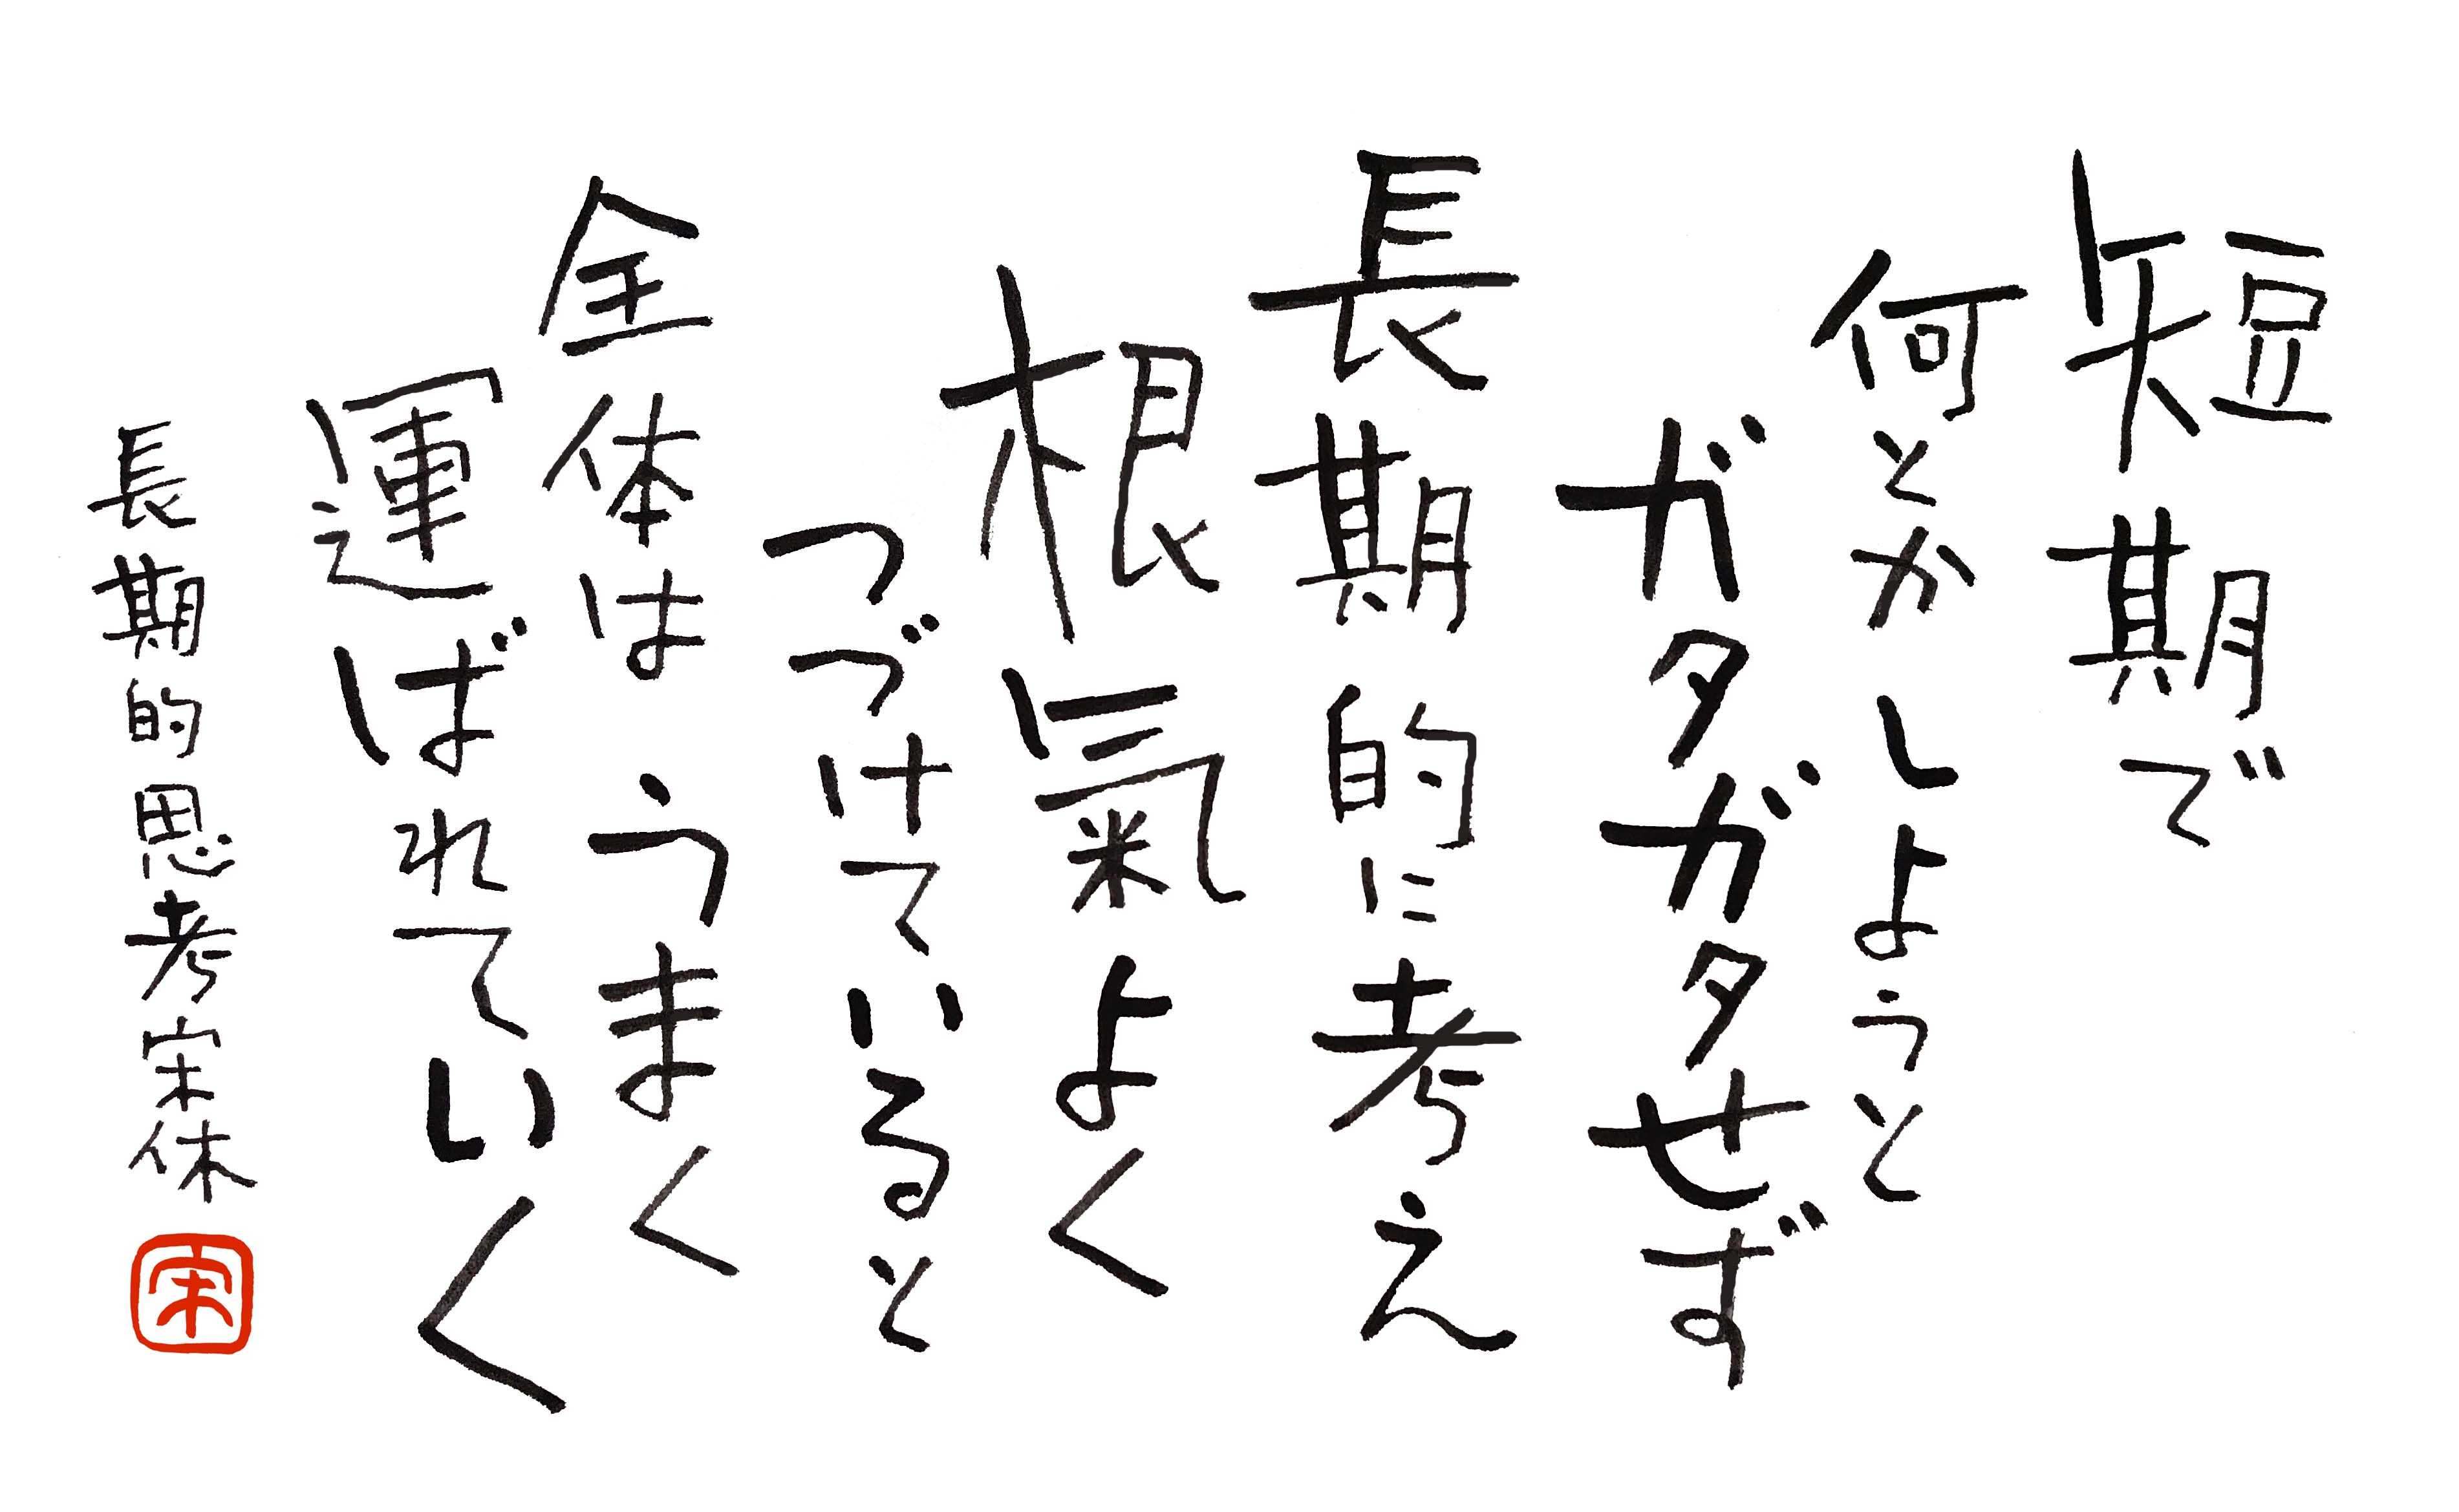 短期で
何とかしようと
ガタガタせず
長期的に考え
根氣よく
つづけていると
全体はうまく
運ばれていく
長期的思考宋休
宋